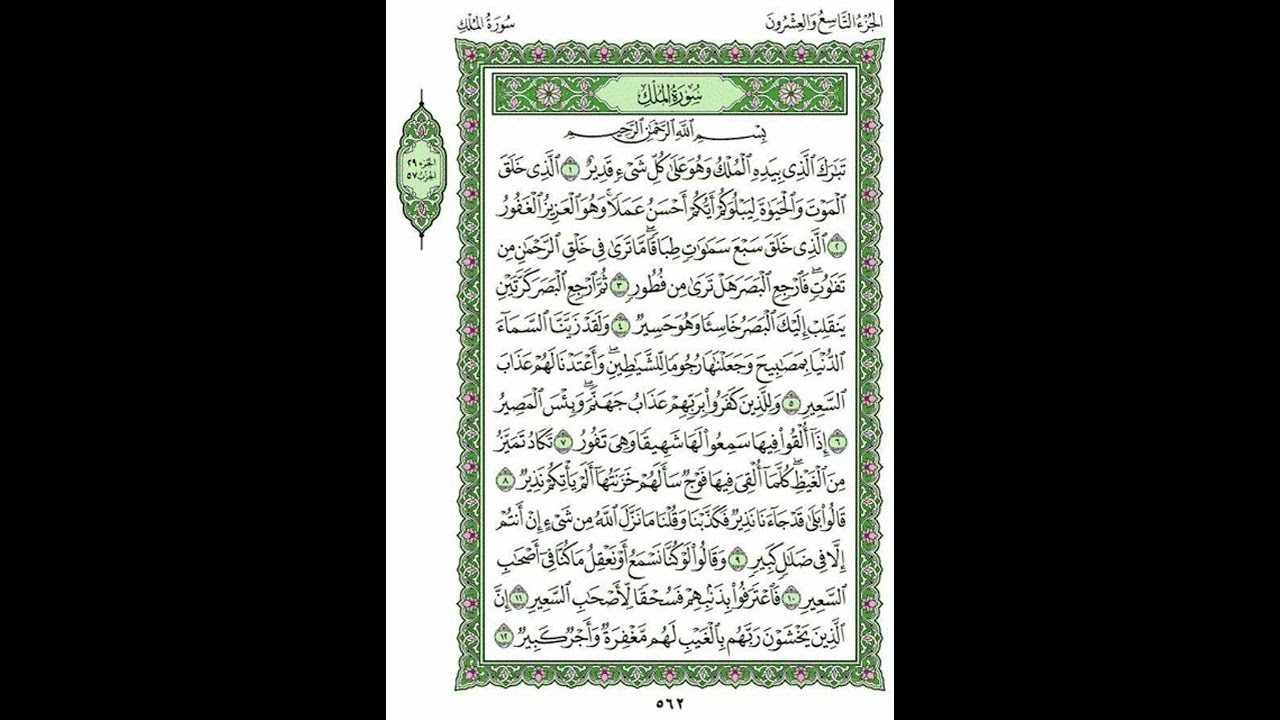 الجزء التاسع والعشرون
سورة الملك
سُورَةُ المُلْكِ
بِسْمِ اللَّهِ الرَّحْمَٰنِ الرَّحِيمِ
الجزء ٢٩
الحزب ٥٧
تَبَٰرَكَ ٱلَّذِى بِيَدِهِ ٱلْمُلْكُ وَهُوَ عَلَىٰ كُلِّ شَىْءٍ قَدِيرٌ ١ ٱلَّذِى خَلَقَ
ٱلْمَوْتَ وَٱلْحَيَوٰةَ لِيَبْلُوَكُمْ أَيُّكُمْ أَحْسَنُ عَمَلًا ۚ وَهُوَ ٱلْعَزِيزُ ٱلْغَفُورُ
٢ ٱلَّذِى خَلَقَ سَبْعَ سَمَٰوَٰتٍ طِبَاقًا ۖ مَّا تَرَىٰ فِى خَلْقِ ٱلرَّحْمَٰنِ مِن
تَفَٰوُتٍ ۖ فَٱرْجِعِ ٱلْبَصَرَ هَلْ تَرَىٰ مِن فُطُورٍ ٣ ثُمَّ ٱرْجِعِ ٱلْبَصَرَ كَرَّتَيْنِ
يَنقَلِبْ إِلَيْكَ ٱلْبَصَرُ خَاسِئًا وَهُوَ حَسِيرٌ ٤ وَلَقَدْ زَيَّنَّا ٱلسَّمَآءَ
ٱلدُّنْيَا بِمَصَٰبِيحَ وَجَعَلْنَٰهَا رُجُومًا لِّلشَّيَٰطِينِ ۖ وَأَعْتَدْنَا لَهُمْ عَذَابَ
ٱلسَّعِيرِ ٥ وَلِلَّذِينَ كَفَرُوا۟ بِرَبِّهِمْ عَذَابُ جَهَنَّمَ ۖ وَبِئْسَ ٱلْمَصِيرُ
٦ إِذَآ أُلْقُوا۟ فِيهَا سَمِعُوا۟ لَهَا شَهِيقًا وَهِىَ تَفُورُ ٧ تَكَادُ تَمَيَّزُ
مِنَ ٱلْغَيْظِ ۖ كُلَّمَآ أُلْقِىَ فِيهَا فَوْجٌ سَأَلَهُمْ خَزَنَتُهَآ أَلَمْ يَأْتِكُمْ نَذِيرٌ ٨
قَالُوا۟ بَلَىٰ قَدْ جَآءَنَا نَذِيرٌ فَكَذَّبْنَا وَقُلْنَا مَا نَزَّلَ ٱللَّهُ مِن شَىْءٍ إِنْ أَنتُمْ
إِلَّا فِى ضَلَٰلٍ كَبِيرٍ ٩ وَقَالُوا۟ لَوْ كُنَّا نَسْمَعُ أَوْ نَعْقِلُ مَا كُنَّا فِىٓ أَصْحَٰبِ
ٱلسَّعِيرِ ١٠ فَٱعْتَرَفُوا۟ بِذَنۢبِهِمْ فَسُحْقًا لِّأَصْحَٰبِ ٱلسَّعِيرِ ١١ إِنَّ
ٱلَّذِينَ يَخْشَوْنَ رَبَّهُم بِٱلْغَيْبِ لَهُم مَّغْفِرَةٌ وَأَجْرٌ كَبِيرٌ ١٢
٥٦٢